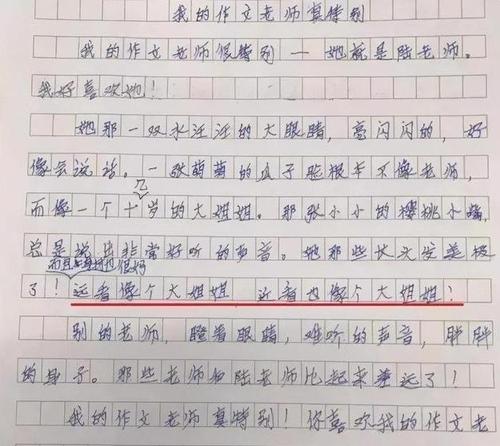 我的作文老师真特别
我的作文老师很特别——她就是陆老师。
我好喜欢她！
她那一双水汪汪的大眼睛，亮闪闪的，好
像会说话。一张萌萌的瓜子脸根本不像老师，
几
而像一个十岁的大姐姐。那张小小的樱桃小嘴，
总是说出非常好听的声音。她那些长头发美极
而且身材也很好
了！远看像个大姐姐 近看也像个大姐姐！
别的老师，瞪着眼睛，难听的声音，胖胖
的身子。那些老师和陆老师比起来差远了！
我的作文老师真特别！你喜欢我的作文老